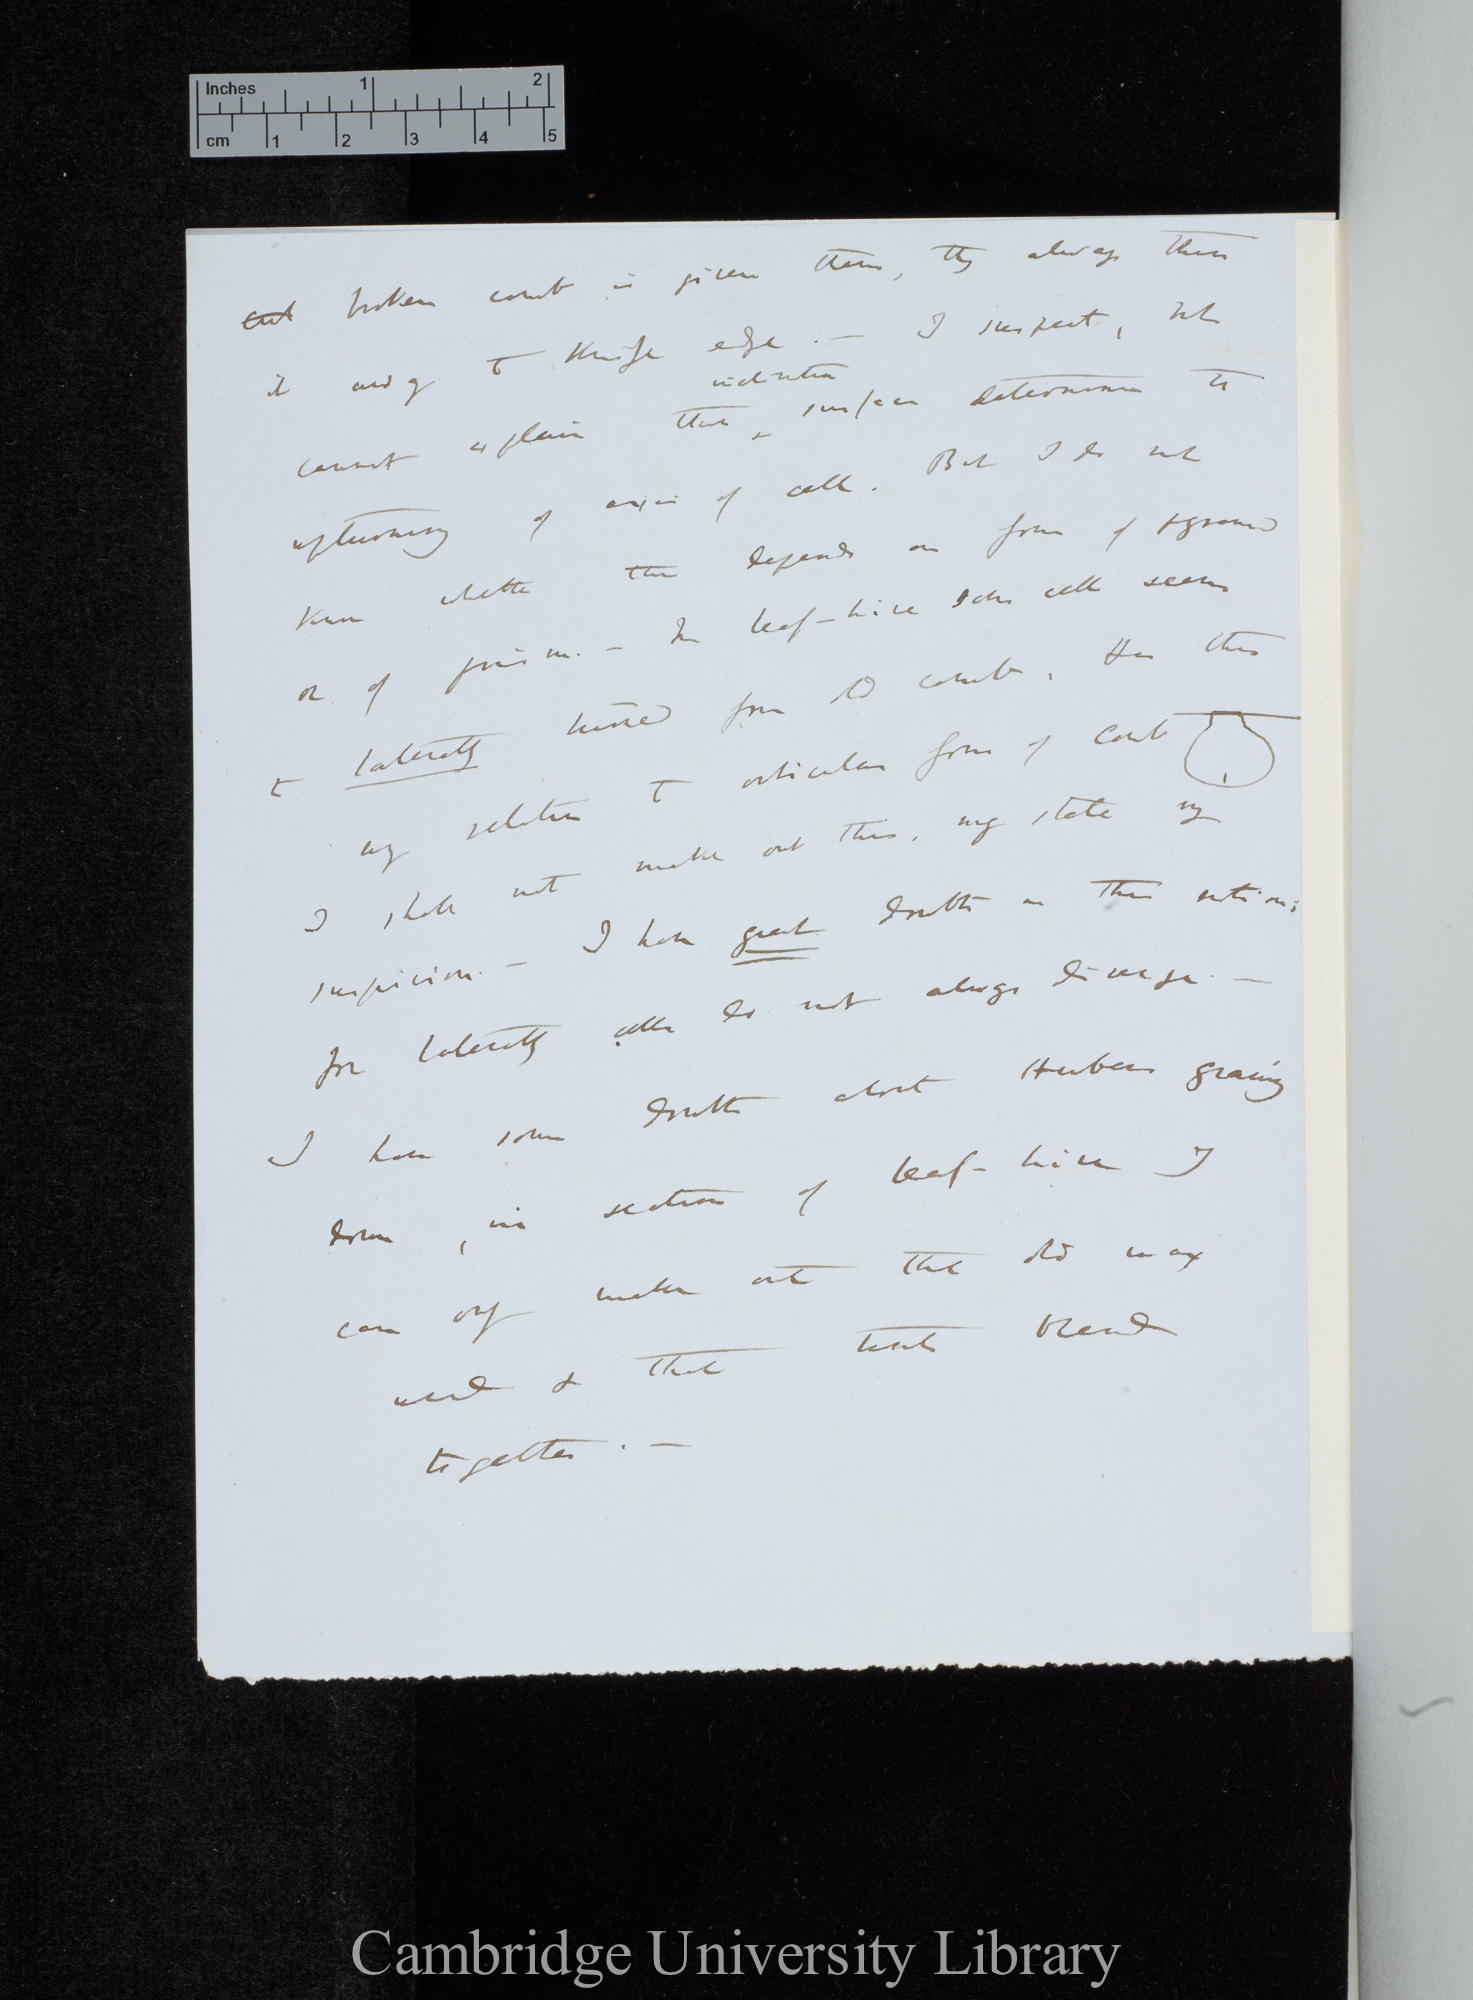 Inches 1 2
cm 1 2 3 4 5
cut broken comb is given them, they always thin
it away to Knife edge. — I suspect, but
inclination
cannot explain that surface determines the
upturning of axis of cell. But I do not
know whether this depends on form of
or of prism. — In leaf-hive some cells seem
to laterally turned from old comb, Has this
any relation to orticular form of comb
I shall not make out this. may state my
suspicion. — I have great doubts on this notion;
for laterally cells do not always diverge. —
I have some doubts about Hubers gnawing
down, in section of leaf-hive I
can only make out that old wax
used & that both blend
together. —
Cambridge University Library